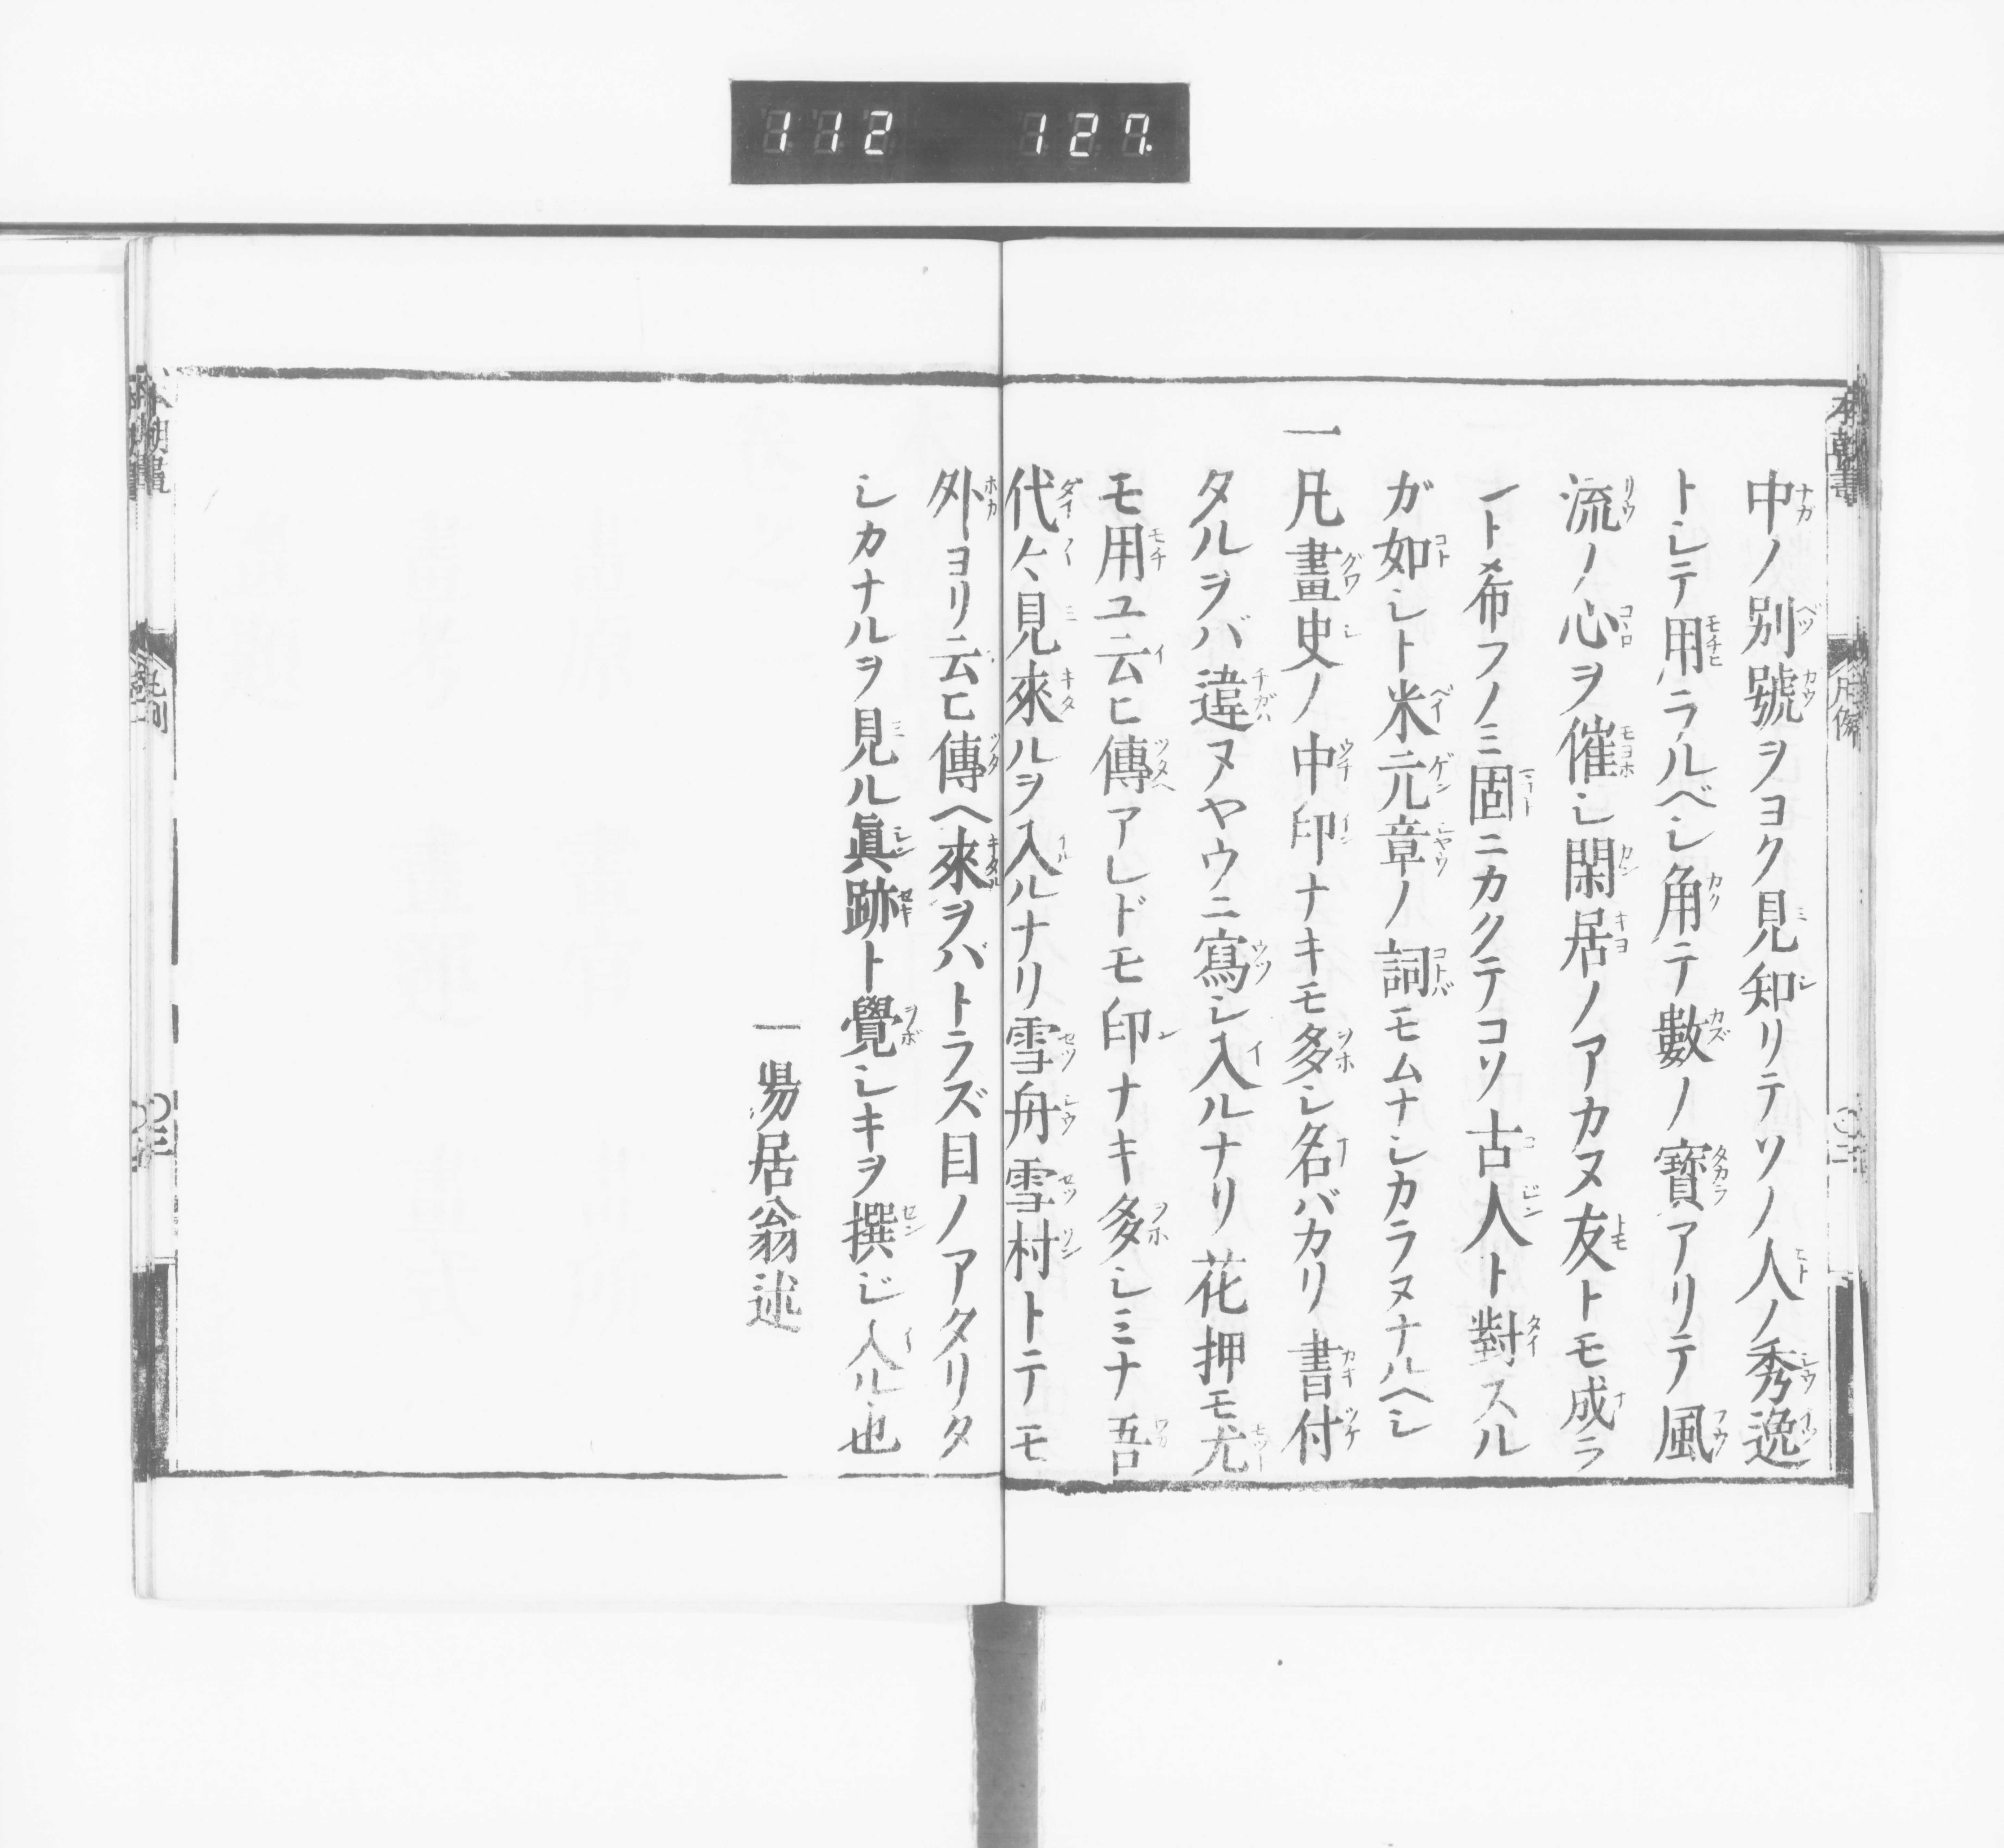 112 127
中ノ別號ヲヨク見知リテソノ人ノ秀逸
トシテ用ラルベシ角テ數ノ寶アリテ風
流ノ心ヲ催シ閑居ノアカヌ友トモ成ラ
ント希フノミ固ニカクテコソ古人ト對スル
ガ如シト米元章ノ詞モムナシカラヌナルヘシ
一凡畫史ノ中印ナキモ多シ名バカリ書付
タルヲバ違ヌヤウニ寫シ入ルナリ花押モ尤
モ用ユ云ヒ傳アレドモ印ナキ多シミナ吾
代々見來ルヲ入ルナリ雪舟雪村トテモ
外ヨリ云ヒ傳ヘ來ヲバトラズ目ノアタリタ
シカナルヲ見ル眞跡ト覺シキヲ撰ジ入ル也
一昜居翁述